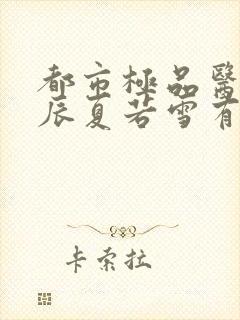 都市極品醫
辰夏若雪有
卡索拉